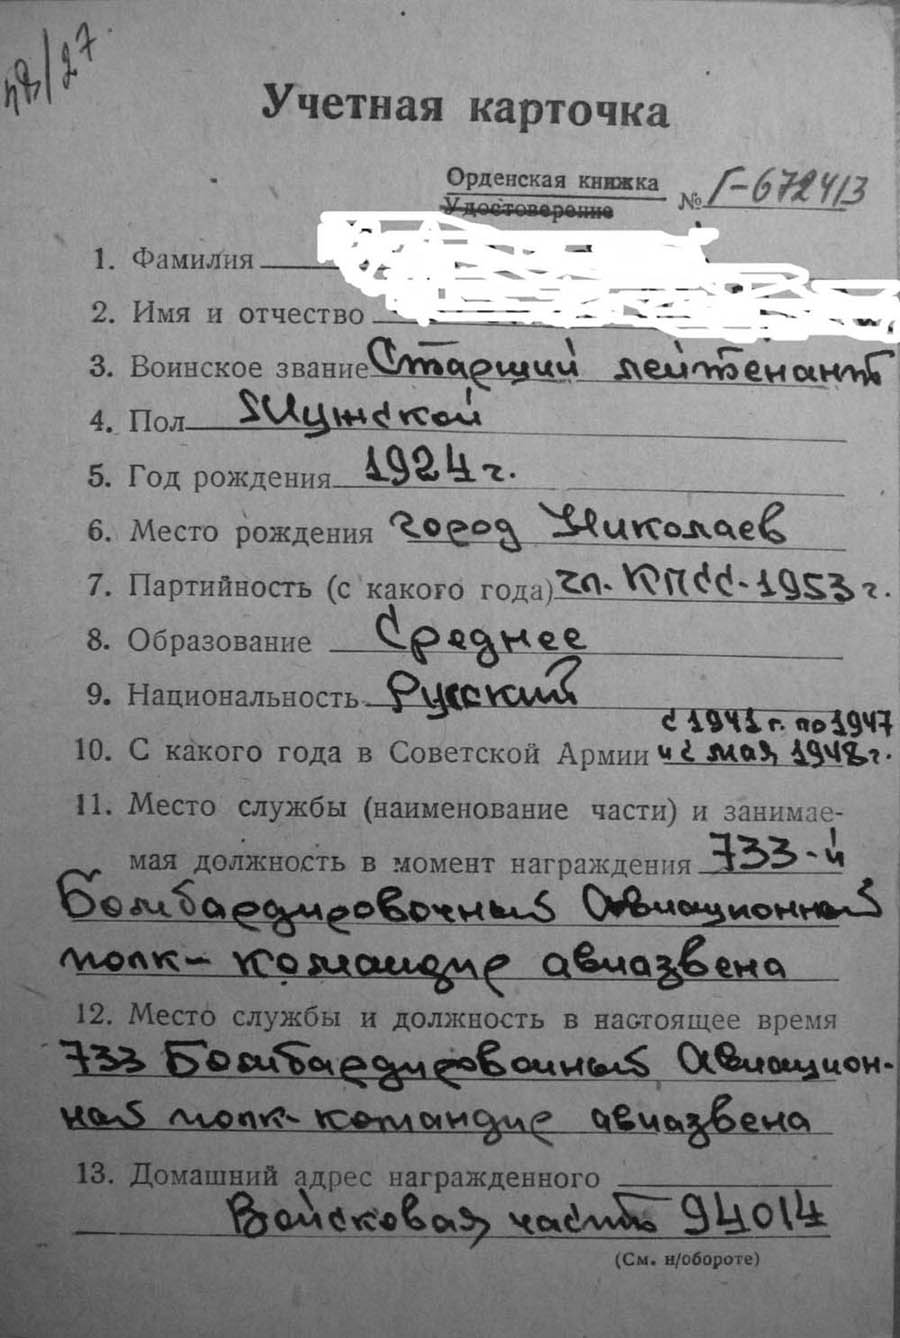 48/27
Учетная карточка
Орденская книжка
Удостоверение
№ Г-672413
1. Фамилия
2. Имя и отчество
3. Воинское звание Старший лейтенант
4. Пол Мужской
5. Год рождения 1924 г.
6. Место рождения город Николаев
7. Партийность (с какого года) чл. КПСС-1953 г.
8. Образование Среднее
9. Национальность Русский
с 1941 г. по 1947
10. С какого года в Советской Армии и с мая 1948 г.
11. Место службы (наименование части) и занимае-
мая должность в момент награждения 733-й
Бомбардировочный Авиационный
полк- командир авиазвена
12. Место службы и должность в настоящее время
733 Бомбардировочный Авиацион-
ный полк- командир авиазвена
13. Домашний адрес награжденного
Войсковая часть 94014
(См. н/обороте)